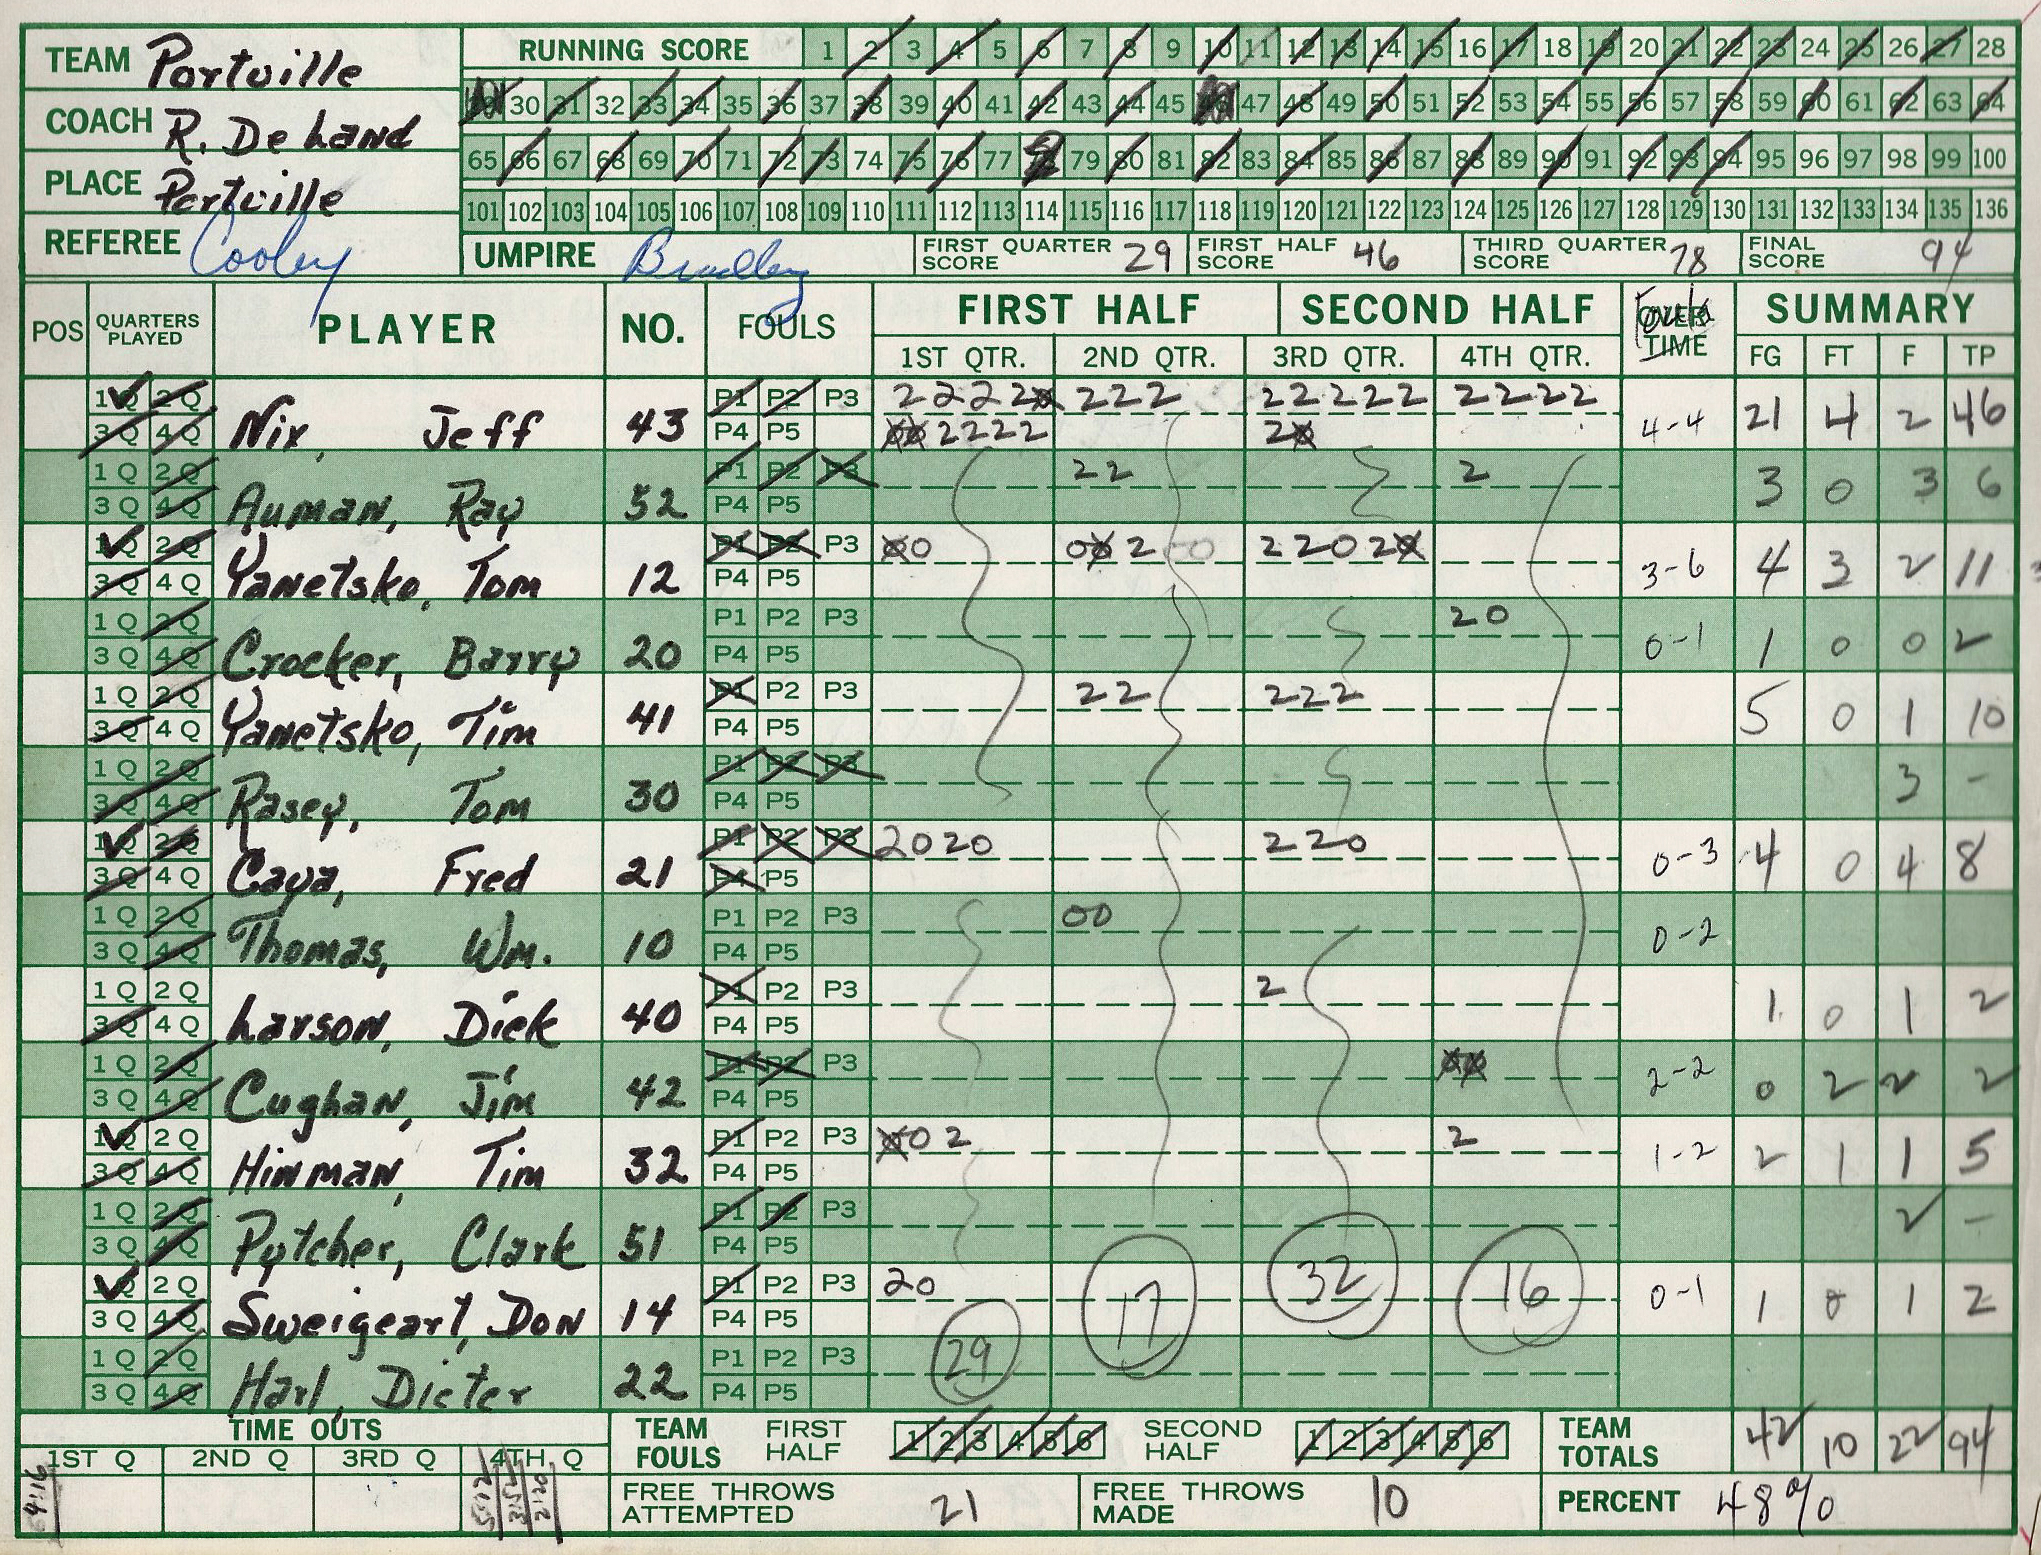 TEAM Portville
RUNNING SCORE 1 2 3 4 5 6 7 8 9 10 11 12 13 14 15 16 17 18 19 20 21 22 23 24 25 26 27 28
30 31 32 33 34 35 36 37 38 39 40 41 42 43 44 45 47 48 49 50 51 52 53 54 55 56 57 58 59 60 61 62 63 64
COACH R. DeLand
65 66 67 68 69 70 71 72 73 74 75 76 77 79 80 81 82 83 84 85 86 87 88 89 90 91 92 93 94 95 96 97 98 99 100
PLACE Portville
101 102 103 104 105 106 107 108 109 110 111 112 113 114 115 116 117 118 119 120 121 122 123 124 125 126 127 128 129 130 131 132 133 134 135 136
REFEREE Cooley
UMPIRE Bradley
FIRST QUARTER SCORE 29
FIRST HALF SCORE 46
THIRD QUARTER SCORE 78
FINAL SCORE 94
POS QUARTERS PLAYED PLAYER NO. FOULS FIRST HALF SECOND HALF OVER TIME SUMMARY
1ST QTR. 2ND QTR. 3RD QTR. 4TH QTR. FG FT F TP
1Q 2Q P1 P2 P3 2 2 2 2 2 0 2 2 2 2 2 2 2 2 2 2 2 2
3Q 4Q Nix, Jeff 43 P4 P5 0 0 2 2 2 2 2 0 4-4 21 4 2 46
1Q 2Q P1 P2 P3 2 2 2
3Q 4Q Auman, Ray 52 P4 P5 3 0 3 6
1Q 2Q P1 P2 P3 0 0 0 0 2 0 0 2 2 0 2 0
3Q 4Q Yanetsko, Tom 12 P4 P5 3-6 4 3 2 11
1Q 2Q P1 P2 P3 2 0
3Q 4Q Crocker, Barry 20 P4 P5 0-1 1 0 0 2
1Q 2Q P1 P2 P3 2 2 2 2 2
3Q 4Q Yanetsko, Tim 41 P4 P5 5 0 1 10
1Q 2Q P1 P2 P3
3Q 4Q Rasey, Tom 30 P4 P5 3 -
1Q 2Q P1 P2 P3 2 0 2 0 2 2 0
3Q 4Q Caya, Fred 21 P4 P5 0-3 4 0 4 8
1Q 2Q P1 P2 P3 0 0
3Q 4Q Thomas, Wm. 10 P4 P5 0-2
1Q 2Q P1 P2 P3 2
3Q 4Q Larson, Dick 40 P4 P5 1 0 1 2
1Q 2Q P1 P2 P3 0 0
3Q 4Q Cughan, Jim 42 P4 P5 2-2 0 2 2 2
1Q 2Q P1 P2 P3 0 0 2 2
3Q 4Q Hinman, Tim 32 P4 P5 1-2 2 1 1 5
1Q 2Q P1 P2 P3
3Q 4Q Pytcher, Clark 51 P4 P5 2 -
1Q 2Q P1 P2 P3 2 0
3Q 4Q Sweigeart, Don 14 P4 P5 0-1 1 0 1 2
29 17 32 16
1Q 2Q P1 P2 P3
3Q 4Q Harl, Dieter 22 P4 P5
TIME OUTS
1ST Q 2ND Q 3RD Q 4TH Q
4:16
TEAM FOULS FIRST HALF 1 2 3 4 5 6 SECOND HALF 1 2 3 4 5 6
TEAM TOTALS 42 10 22 94
FREE THROWS ATTEMPTED 21
FREE THROWS MADE 10
PERCENT 48%